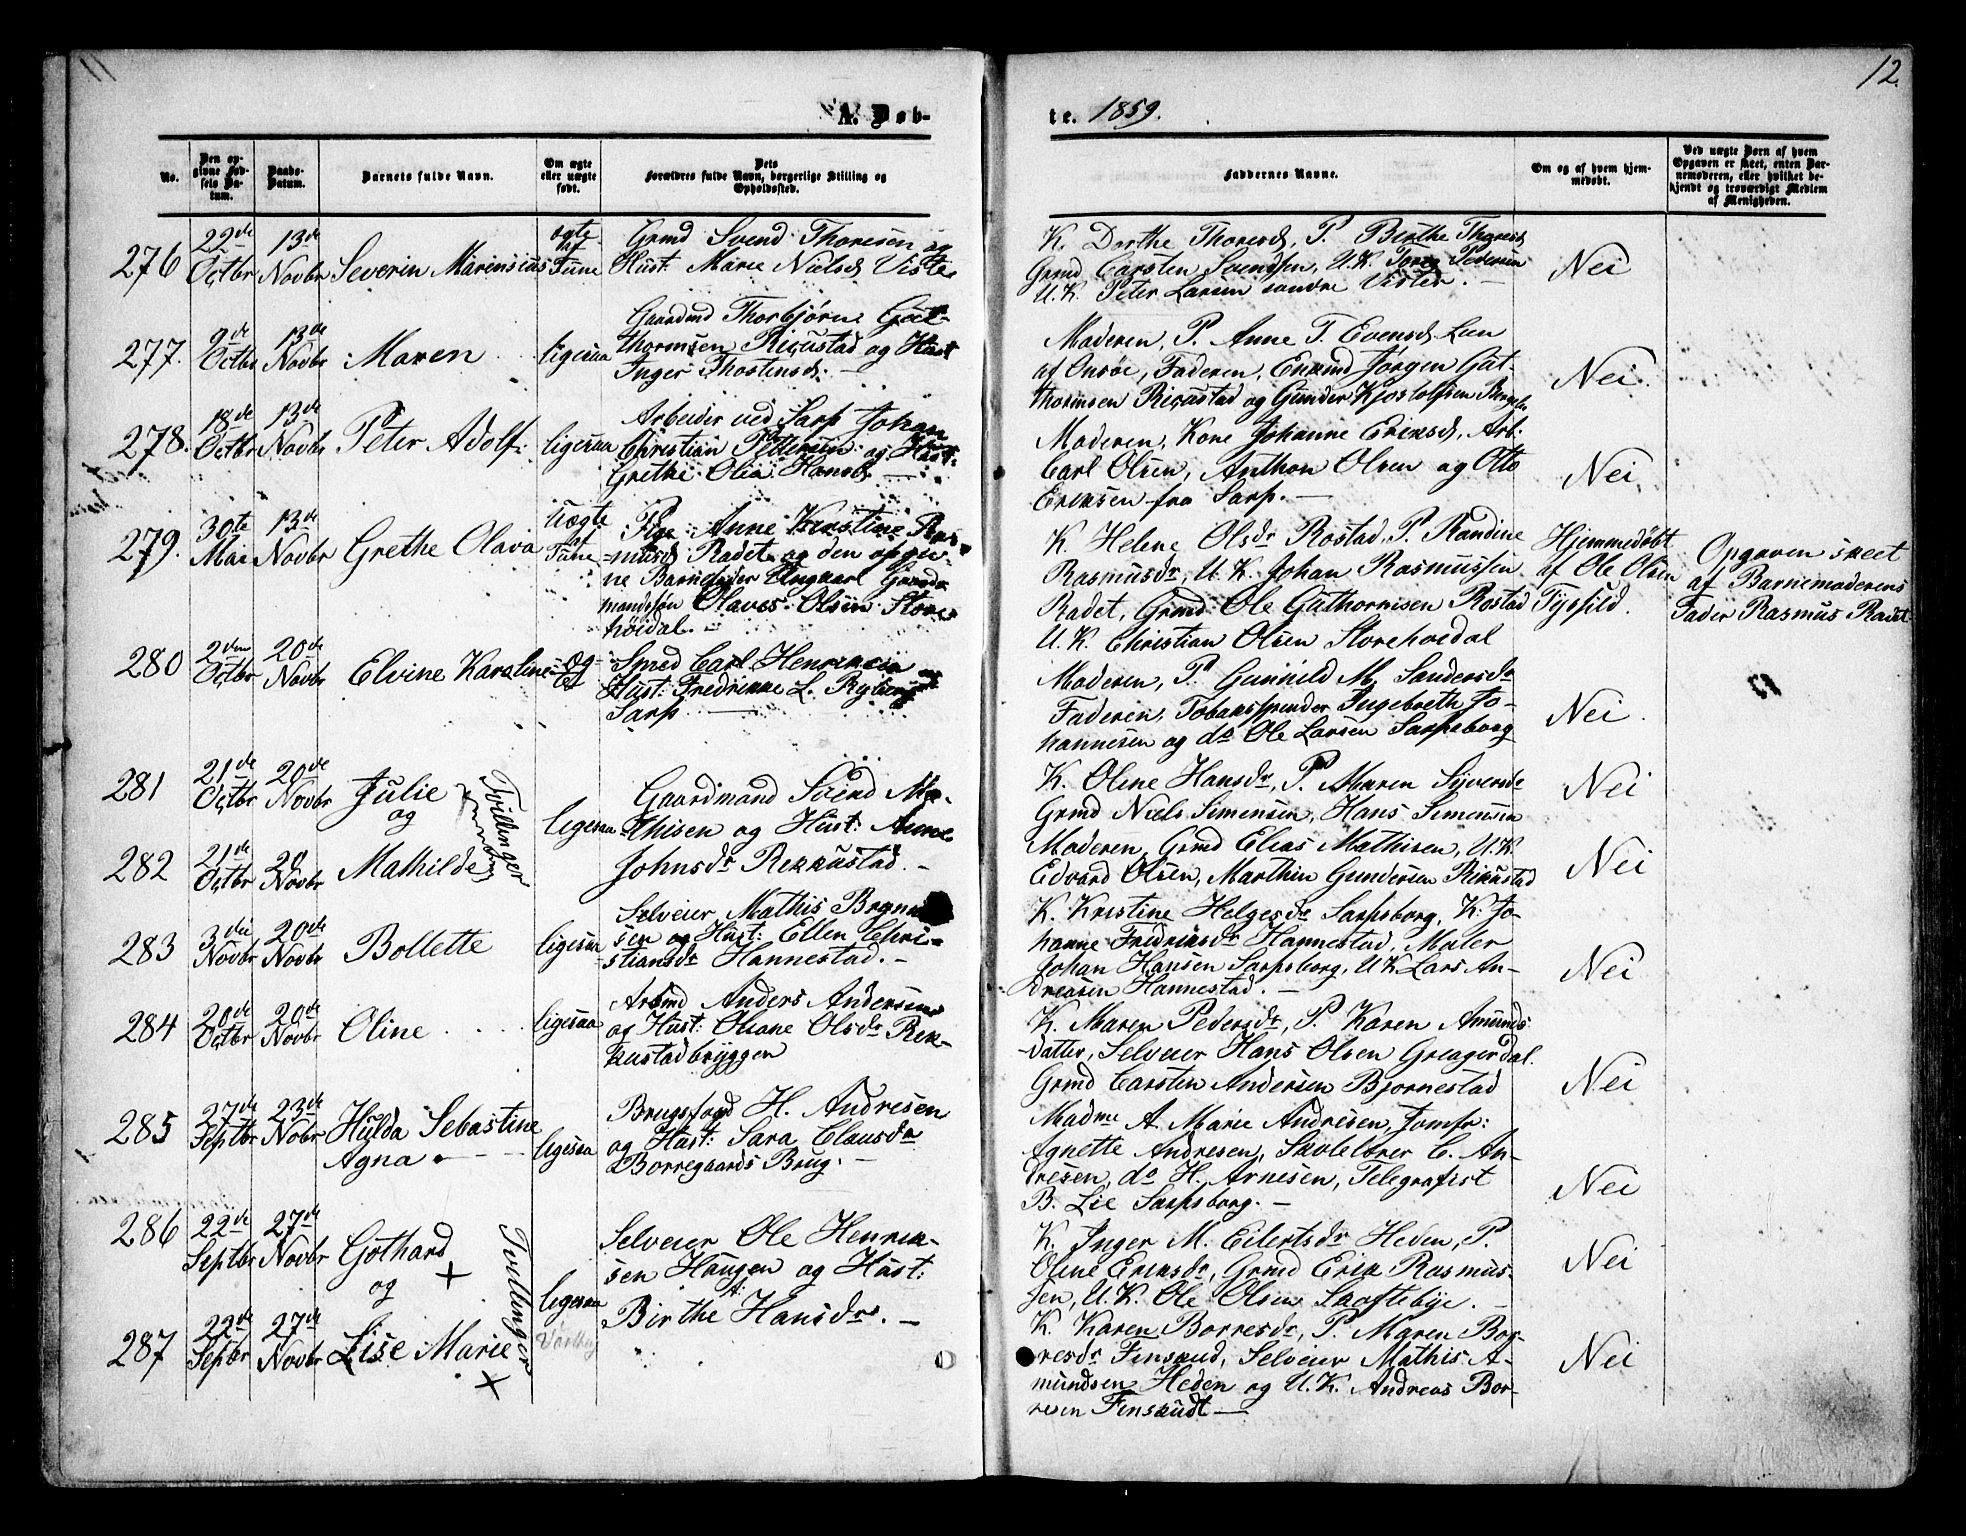 11
12.
A. Døb-
te. 1859.
No.
Den op-
givne Fød-
sels Da-
tum.
Daabs-
Datum.
Barnets fulde Navn.
Om ægte
eller uægte
født.
Dets
Forældres fulde Navn, borgerlige Stilling og
Opholdssted.
Faddernes Navne.
Om og af hvem hjem-
medøbt.
Ved uægte Børn af hvem
Opgaven er skeet, enten Bar-
nemoderen, eller hvilket be-
kjendt og troværdigt Medlem
af Menigheden.
276
22de
Octbr
13de
Novbr
Severin Marensius
ægte
af
Tune
Grmd Svend Thoresen og
Hust: Marie Nielsd Viste
K. Dorthe Thoresd, P. Birthe Thoresd
Grmd Carsten Svendsen, U.K. Tore Pedersen
U.K. Peter Larsen søndre Visten. —
Nei
277.
9de
Octbr
13de
Novbr
Maren
ligesaa
Gaardmd Thorbjørn Gut-
thormsen Ricustad og Hust
Inger Thostensd. —
Moderen, P. Anne T. Evensd Lun
af Onsøe, Faderen, Enkemd Jørgen Gut-
thormsen Ricustad og Gunder Kjostolfsen
Nei.
278.
18de
Octbr
13de
Novbr
Peter Adolf
ligesaa
Arbeider ved Sarp Johan
Christian Pettersen og Hust:
Grethe Olia Hansd —
Moderen, Kone Johanne Eriksd, Arb:
Carl Olsen, Anthon Olsen og Otto
Eriksen fra Sarp. —
Nei
279.
30te
Mai
13de
Novbr
Grethe Olava
Uægte
af
Tune
Pige Anne Kirstine Ras-
musd Radet og den opgiv-
ne Barnefader Ungkarl Gaard-
mandssøn Olaves Olsen Store-
höidal. —
K. Helene Olsdr Rostad, P. Randine
Rasmusdr, U.K. Johan Rasmussen
Radet, Grmd Ole Guthormsen Rostad
U.K. Christian Olsen Storehoidal
Hjemmedøbt
af Ole Olsen
Opgaven skeet
af Barnemoderens
Fader Rasmus Radet
280
2den
Octbr
20de
Novbr
Elvine Karoline
Smed Carl Henriksen og
Hust: Fredrikke L. Ryberg
Sarp —
Moderen, P. Gunnild M. Sandersdr
Faderen, Tobaksspinder Ingebreth Jo-
hannesen og do Ole Larsen Sarpsborg
Nei.
281
21de
Octbr
20de
Novbr
Julie
og
Tvillinger
ligesaa
Gaardmand Svend Ma-
thisen og Hust: Anne
Johnsdr Rekkustad. —
K. Oline Hansdr, P. Maren Syversdr
Grmd Niels Simensen, Hans Simensen
Nei
282
21de
Octbr
20
Novbr
Mathilde
Moderen, Grmd Elias Mathisen, U.K
Edvard Olsen, Marthin Gundersen Rikustad
Nei
283
3die
Novbr
20de
Novbr
Bollette
ligesaa
Selveier Mathis Brynn
sen og Hust: Ellen Chri-
stiansdr Hannestad. —
K. Kristine Helgesdr Sarpsborg, K. Jo-
hanne Fredriksdr Hannestad, Maler
Johan Hansen Sarpsborg, U.K Lars An-
dreasen Hannestad. —
Nei
284
20de
Octbr
20de
Novbr
Oline
ligesaa
Arbmd Anders Andersen
og Hust: Oliane Olsdr Rek-
kustadbryggen
K. Maren Pedersdr, P. Karen Amunds-
datter, Selveier Hans Olsen Greagerdal
Grmd Carsten Andersen Bjørnestad
Nei
285
27de
Septbr
23de
Nobr
Hulda Sebastine
Agna
ligesaa
Brugsfogd H. Andresen
og Hust: Sara Clausdr
Borregaards Brug. —
Madme A. Marie Andresen, Jomfr:
Agnette Andresen, Skolelærer C. An-
dresen, do H. Arnesen, Telegrafist
B. Lie Sarpsborg. —
Nei
286
22de
Septbr
27de
Novbr
Gothard
og
Tvillinger
ligesaa
Selveier Ole Henrik-
sen Haugen og Hust:
Birthe Hansdr. —
K. Inger M. Eilertsdr Heden, P.
Oline Eriksdr, Grmd Erik Rasmus-
sen, U.K. Ole Olsen Skoftebye. —
Nei
287
22de
Septbr
27de
Novbr
Lise Marie
K. Karen Borresdr, P. Maren Bor-
resdr Finskud, Selveier Mathis A-
mundsen Heden og U.K. Andreas Bor-
resen Finskudt —
Nei